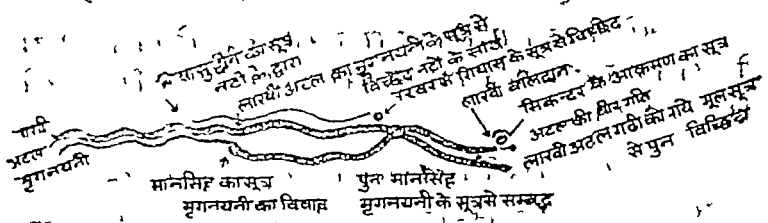 साधु होने का सूत्र
नटों के द्वारा
लाखी अटल का मृगनयनी के सूत्र से
विच्छेद नटों के साथ
नरवर में गियास के सूत्र से विच्छिन्न
लाखी बलिदान
सिकन्दर के आक्रमण का सूत्र
अटल की वीर गति
लाखी अटल गढी को गये मूल सूत्र
से पुन विच्छिन्न
लाखी
अटल
मृगनयनी
मानसिंह का सूत्र
मृगनयनी का विवाह
पुन मानसिंह
मृगनयनी के सूत्र से सम्बद्ध